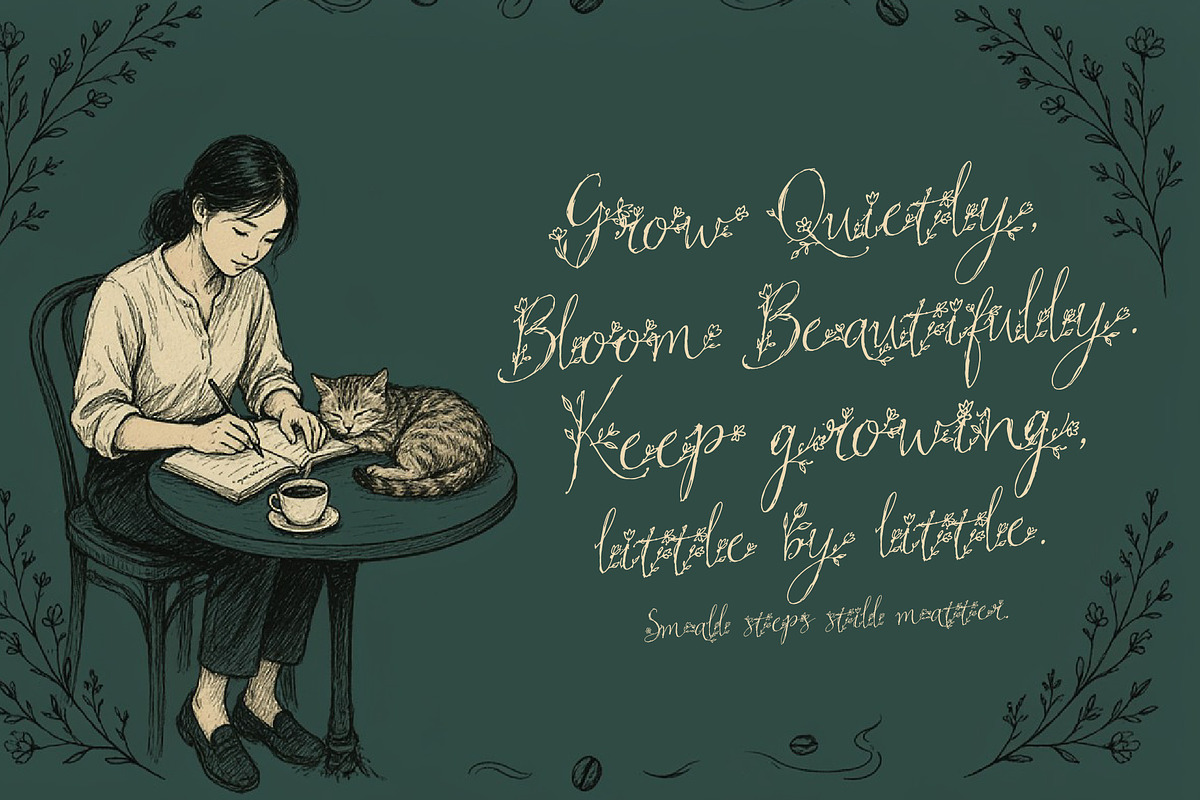 Grow Quietly,
Bloom Beautifully.
Keep growing,
little by little.
Small steps still matter.